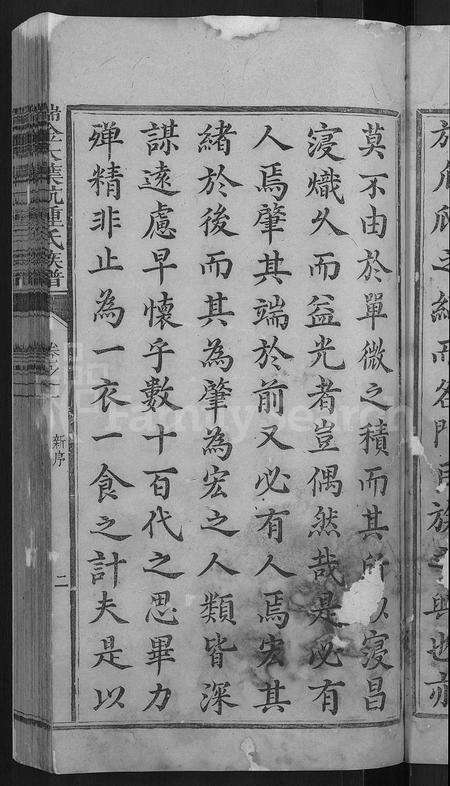 而名門族興也亦
莫不由於單微之積而其所以寖昌
寖熾久而益光者豈偶然哉是必有
人焉肇其端於前又必有人焉宏其
緒於後而其為肇為宏之人類皆深
謀遠慮早懷乎數十百代之思畢力
殫精非止為一衣一食之計夫是以
氏族譜
新序
二
FamilySearch